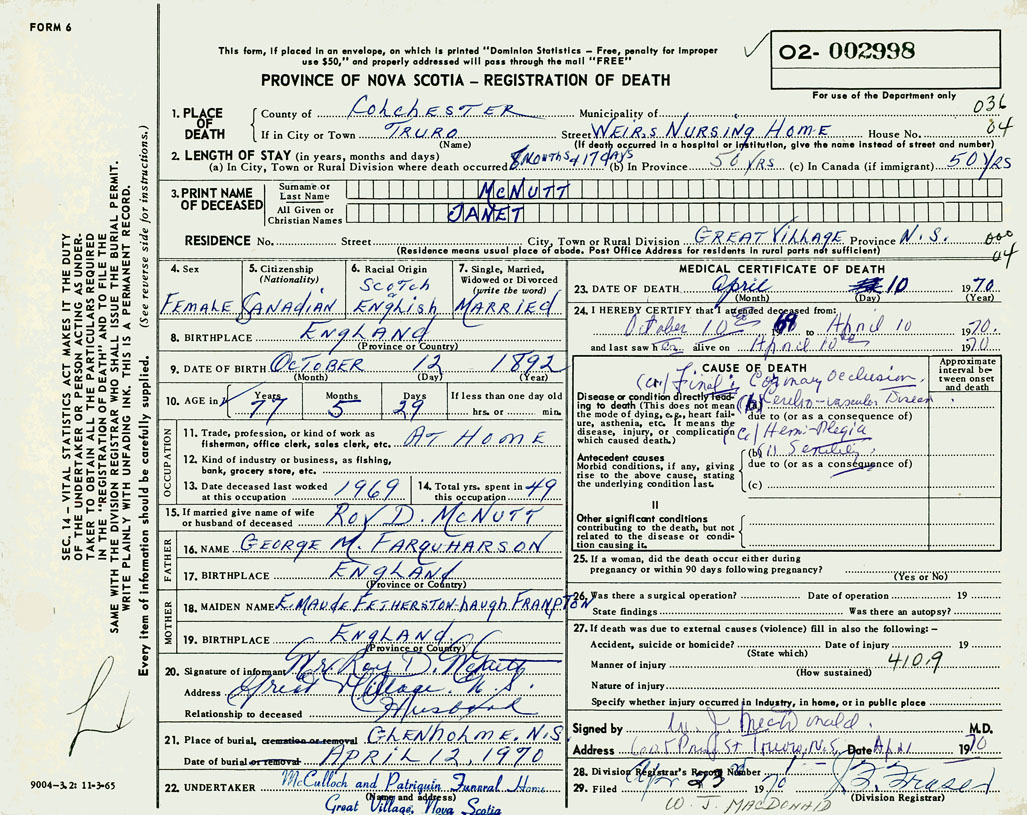 FORM 6
This form, if placed in an envelope, on which is printed "Dominion Statistics – Free, penalty for improper
use $50," and properly addressed will pass through the mail "FREE"
02- 002998
PROVINCE OF NOVA SCOTIA – REGISTRATION OF DEATH
For use of the Department only
036
04
1. PLACE OF DEATH
County of COLCHESTER Municipality of
If in City or Town TRURO Street WEIR,S NURSING HOME House No.
(Name) (If death occurred in a hospital or institution, give the name instead of street and number)
2. LENGTH OF STAY (in years, months and days)
(a) In City, Town or Rural Division where death occurred MONTHS 17 DAYS (b) In Province 50 YRS (c) In Canada (if immigrant) 50 YRS
3. PRINT NAME OF DECEASED
Surname or Last Name MCNUTT
All Given or Christian Names JANET
RESIDENCE No. Street City, Town or Rural Division GREAT VILLAGE Province N.S.
(Residence means usual place of abode. Post Office Address for rural parts not sufficient)
000
04
4. Sex FEMALE
5. Citizenship (Nationality) CANADIAN
6. Racial Origin SCOTCH ENGLISH
7. Single, Married, Widowed or Divorced (write the word) MARRIED
8. BIRTHPLACE ENGLAND
(Province or Country)
9. DATE OF BIRTH OCTOBER 12 1892
(Month) (Day) (Year)
10. AGE in Years 77 Months 5 Days 29 If less than one day old
hrs. or min.
OCCUPATION
11. Trade, profession, or kind of work as fisherman, office clerk, sales clerk, etc. AT HOME
12. Kind of industry or business, as fishing, bank, grocery store, etc.
13. Date deceased last worked at this occupation 1969
14. Total yrs. spent in this occupation 49
15. If married give name of wife or husband of deceased ROY D. MCNUTT
FATHER
16. NAME GEORGE M. FARQUHARSON
17. BIRTHPLACE ENGLAND
(Province or Country)
MOTHER
18. MAIDEN NAME E. MAUDE FETHERSTON-HAUGH FRAMPTON
19. BIRTHPLACE ENGLAND
(Province or Country)
20. Signature of informant Mr. Roy D. McNutt
Address Great Village. N.S.
Relationship to deceased Husband
21. Place of burial, cremation or removal GLENHOLME, N.S.
Date of burial or removal APRIL 12, 1970
22. UNDERTAKER McCulloch and Patriquin Funeral Home
(Name and address)
Great Village, Nova Scotia
MEDICAL CERTIFICATE OF DEATH
23. DATE OF DEATH April 10 1970
(Month) (Day) (Year)
24. I HEREBY CERTIFY that I attended deceased from:
October 10th 1969 to April 10 1970.
and last saw her alive on April 10th 1970
CAUSE OF DEATH
Approximate interval between onset and death
(a) Final: Coronary Occlusion.
Disease or condition directly leading to death (This does not mean the mode of dying, e.g., heart failure, asthenia, etc. It means the disease, injury, or complication which caused death.)
(b) Cerebro-vascular Disease
due to (or as a consequence of)
(c) Hemi-Plegia
Antecedent causes
Morbid conditions, if any, giving rise to the above cause, stating the underlying condition last.
(b) Senility
due to (or as a consequence of)
(c)
II
Other significant conditions
contributing to the death, but not related to the disease or condition causing it.
25. If a woman, did the death occur either during
pregnancy or within 90 days following pregnancy?
(Yes or No)
26. Was there a surgical operation? Date of operation 19
State findings Was there an autopsy?
27. If death was due to external causes (violence) fill in also the following: –
Accident, suicide or homicide? Date of injury 19
(State which)
Manner of injury 4109
(How sustained)
Nature of injury
Specify whether injury occurred in industry, in home, or in public place
Signed by W. J. MacDonald. M.D.
Address Prince St Truro, N.S. Date Apl 1970
28. Division Registrar's Record Number
29. Filed Apr 23 1970 Fraser
(Division Registrar)
W. J. MACDONALD
SEC. 14 – VITAL STATISTICS ACT MAKES IT THE DUTY
OF THE UNDERTAKER OR PERSON ACTING AS UNDER-
TAKER TO OBTAIN ALL THE PARTICULARS REQUIRED
IN THE "REGISTRATION OF DEATH" AND TO FILE THE
SAME WITH THE DIVISION REGISTRAR WHO SHALL ISSUE THE BURIAL PERMIT.
WRITE PLAINLY WITH UNFADING INK. THIS IS A PERMANENT RECORD.
Every item of information should be carefully supplied. (See reverse side for instructions.)
9004–3.2: 11-3-65